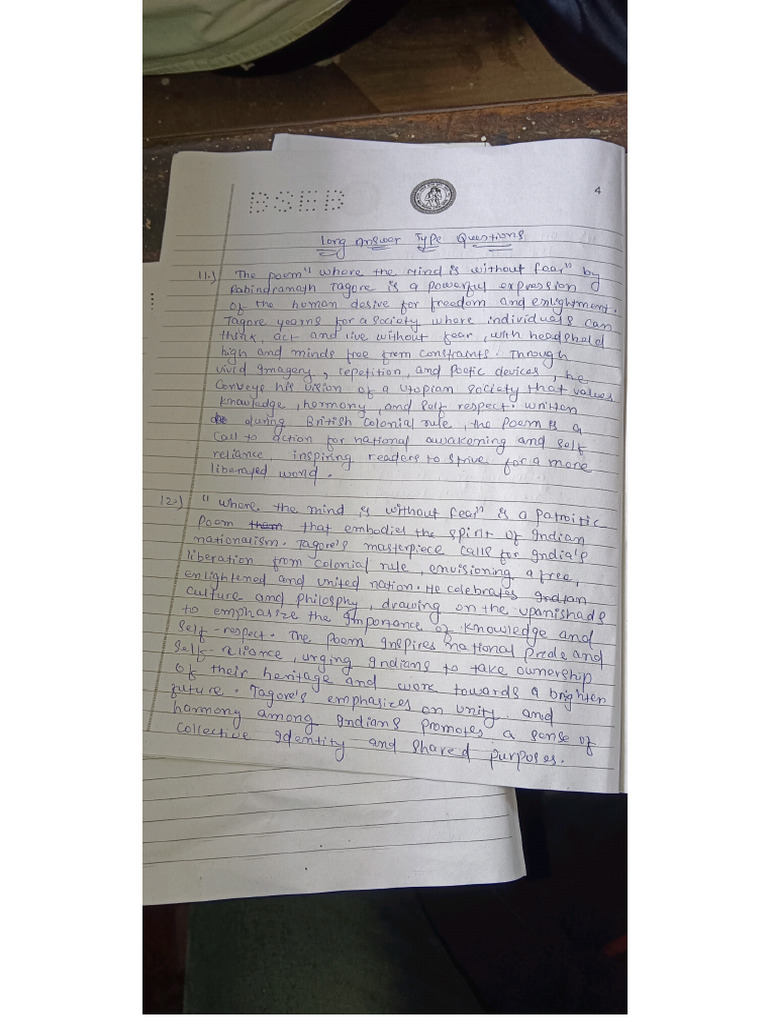 BSEB
4
Long Answer Type Questions
11.) The poem "where the Mind is without fear" by
Rabindranath Tagore is a powerful expression
of the human desire for freedom and enlightment.
Tagore yearns for a society where individuals can
think, act and live without fear, with heads held
high and minds free from constraints. Through
vivid imagery, repetition, and poetic devices, he
conveys his vision of a utopian society that values
knowledge, hormony, and self respect. written
during British colonial rule, the poem is a
call to action for national awakening and self
reliance, inspiring readers to strive for a more
liberayed world.
12.) "where the mind is without fear" is a patroitic
Poem that embodies the spirit of Indian
nationalism. Tagore's masterpiece calls for India's
liberation from colonial rule, envisioning a free,
enlightened and united nation. He celebrates Indian
culture and philosphy, drawing on the upanishads
to emphasize the importance of knowledge and
self-respect. The poem inspires national Prede and
self-reliance, urging Indians to take ownership
of their heritage and work towards a brighter
future. Tagore's emphasizes on unity and
harmony among Indians promotes a sense of
collective identity and shared purposes.